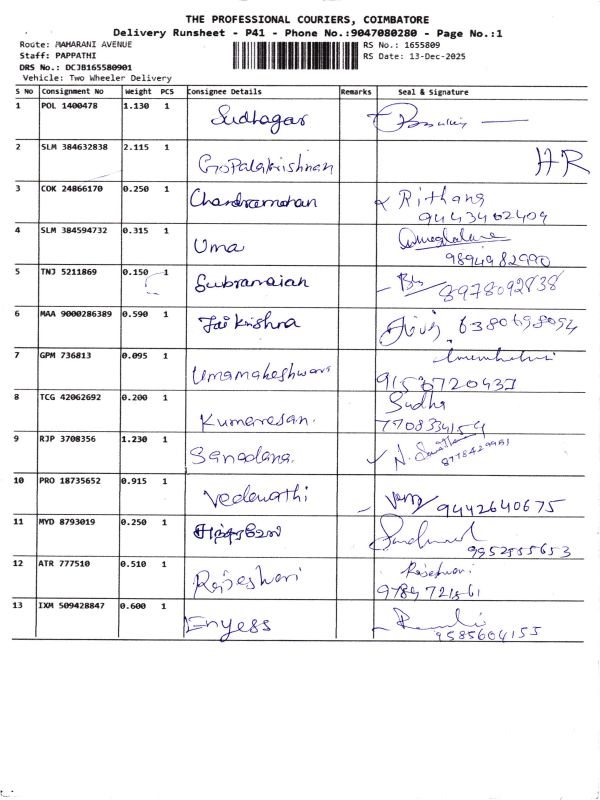 THE PROFESSIONAL COURIERS, COIMBATORE
Delivery Runsheet - P41 - Phone No.:9047080280 - Page No.:1
Route: MAHARANI AVENUE RS No.: 1655809
Staff: PAPPATHI RS Date: 13-Dec-2025
DRS No.: DCJB165580901
Vehicle: Two Wheeler Delivery
S No Consignment No Weight PCS Consignee Details Remarks Seal & Signature
1 POL 1400478 1.130 1 Sudhagar
2 SLM 384632838 2.115 1 GoPalakrishnan HR
3 COK 24866170 0.250 1 Chandramohan Rithana
9443402409
4 SLM 384594732 0.315 1 Uma
9894982990
5 TNJ 5211869 0.150 1 Subramaian 8978092838
6 MAA 9000286389 0.590 1 Jaikrishna 6380698094
7 GPM 736813 0.095 1 Umamakeshwari
9159720437
8 TCG 42062692 0.200 1 Kumaresan. Sudha
7708334154
9 RJP 3708356 1.230 1 Sanadana.
8778429981
10 PRO 18735652 0.915 1 Vedavathi 9442640675
11 MYD 8793019 0.250 1
9952555653
12 ATR 777510 0.510 1 Rajeshwari Rajeshwari
13 IXM 509428847 0.600 1 Enyess
9585604155